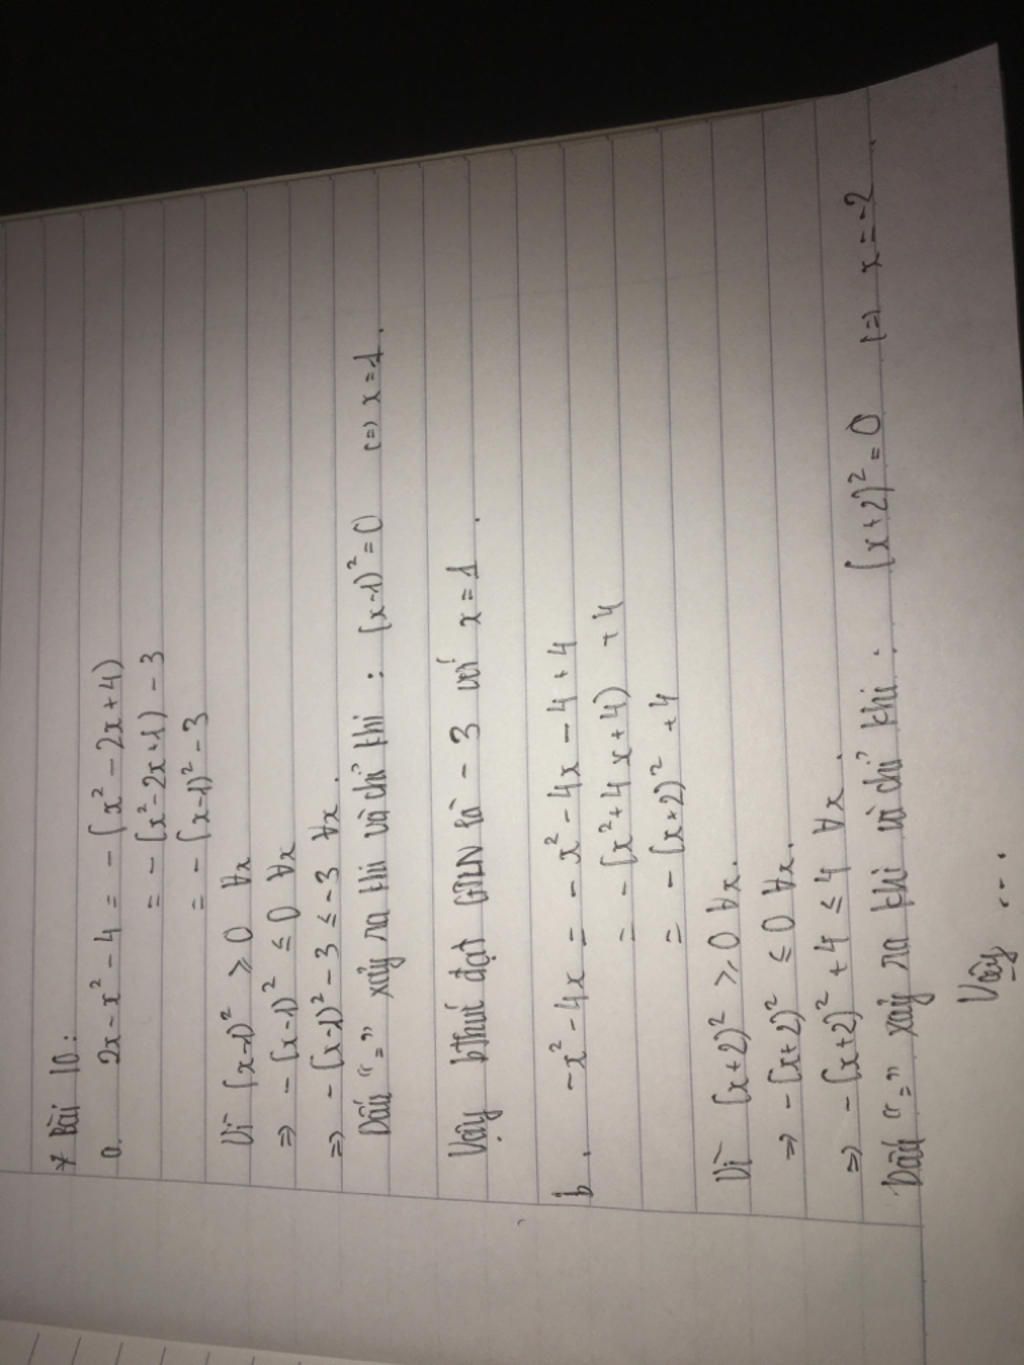 * Bài 10:
a. 2x - x² - 4 = - (x² - 2x + 4)
= - (x² - 2x + 1) - 3
= - (x-1)² - 3
Vì (x-1)² ≥ 0 ∀x
=> - (x-1)² ≤ 0 ∀x
=> - (x-1)² - 3 ≤ -3 ∀x.
Dấu "=" xảy ra khi và chỉ khi : (x-1)² = 0 (=) x = 1.
Vậy bthức đạt GTLN là -3 với x = 1.
b. -x² - 4x = - x² - 4x - 4 + 4
= - (x² + 4x + 4) + 4
= - (x+2)² + 4
Vì (x+2)² ≥ 0 ∀x.
=> - (x+2)² ≤ 0 ∀x.
=> - (x+2)² + 4 ≤ 4 ∀x.
Dấu "=" xảy ra khi và chỉ khi : (x+2)² = 0 (=) x = -2.
Vậy ...